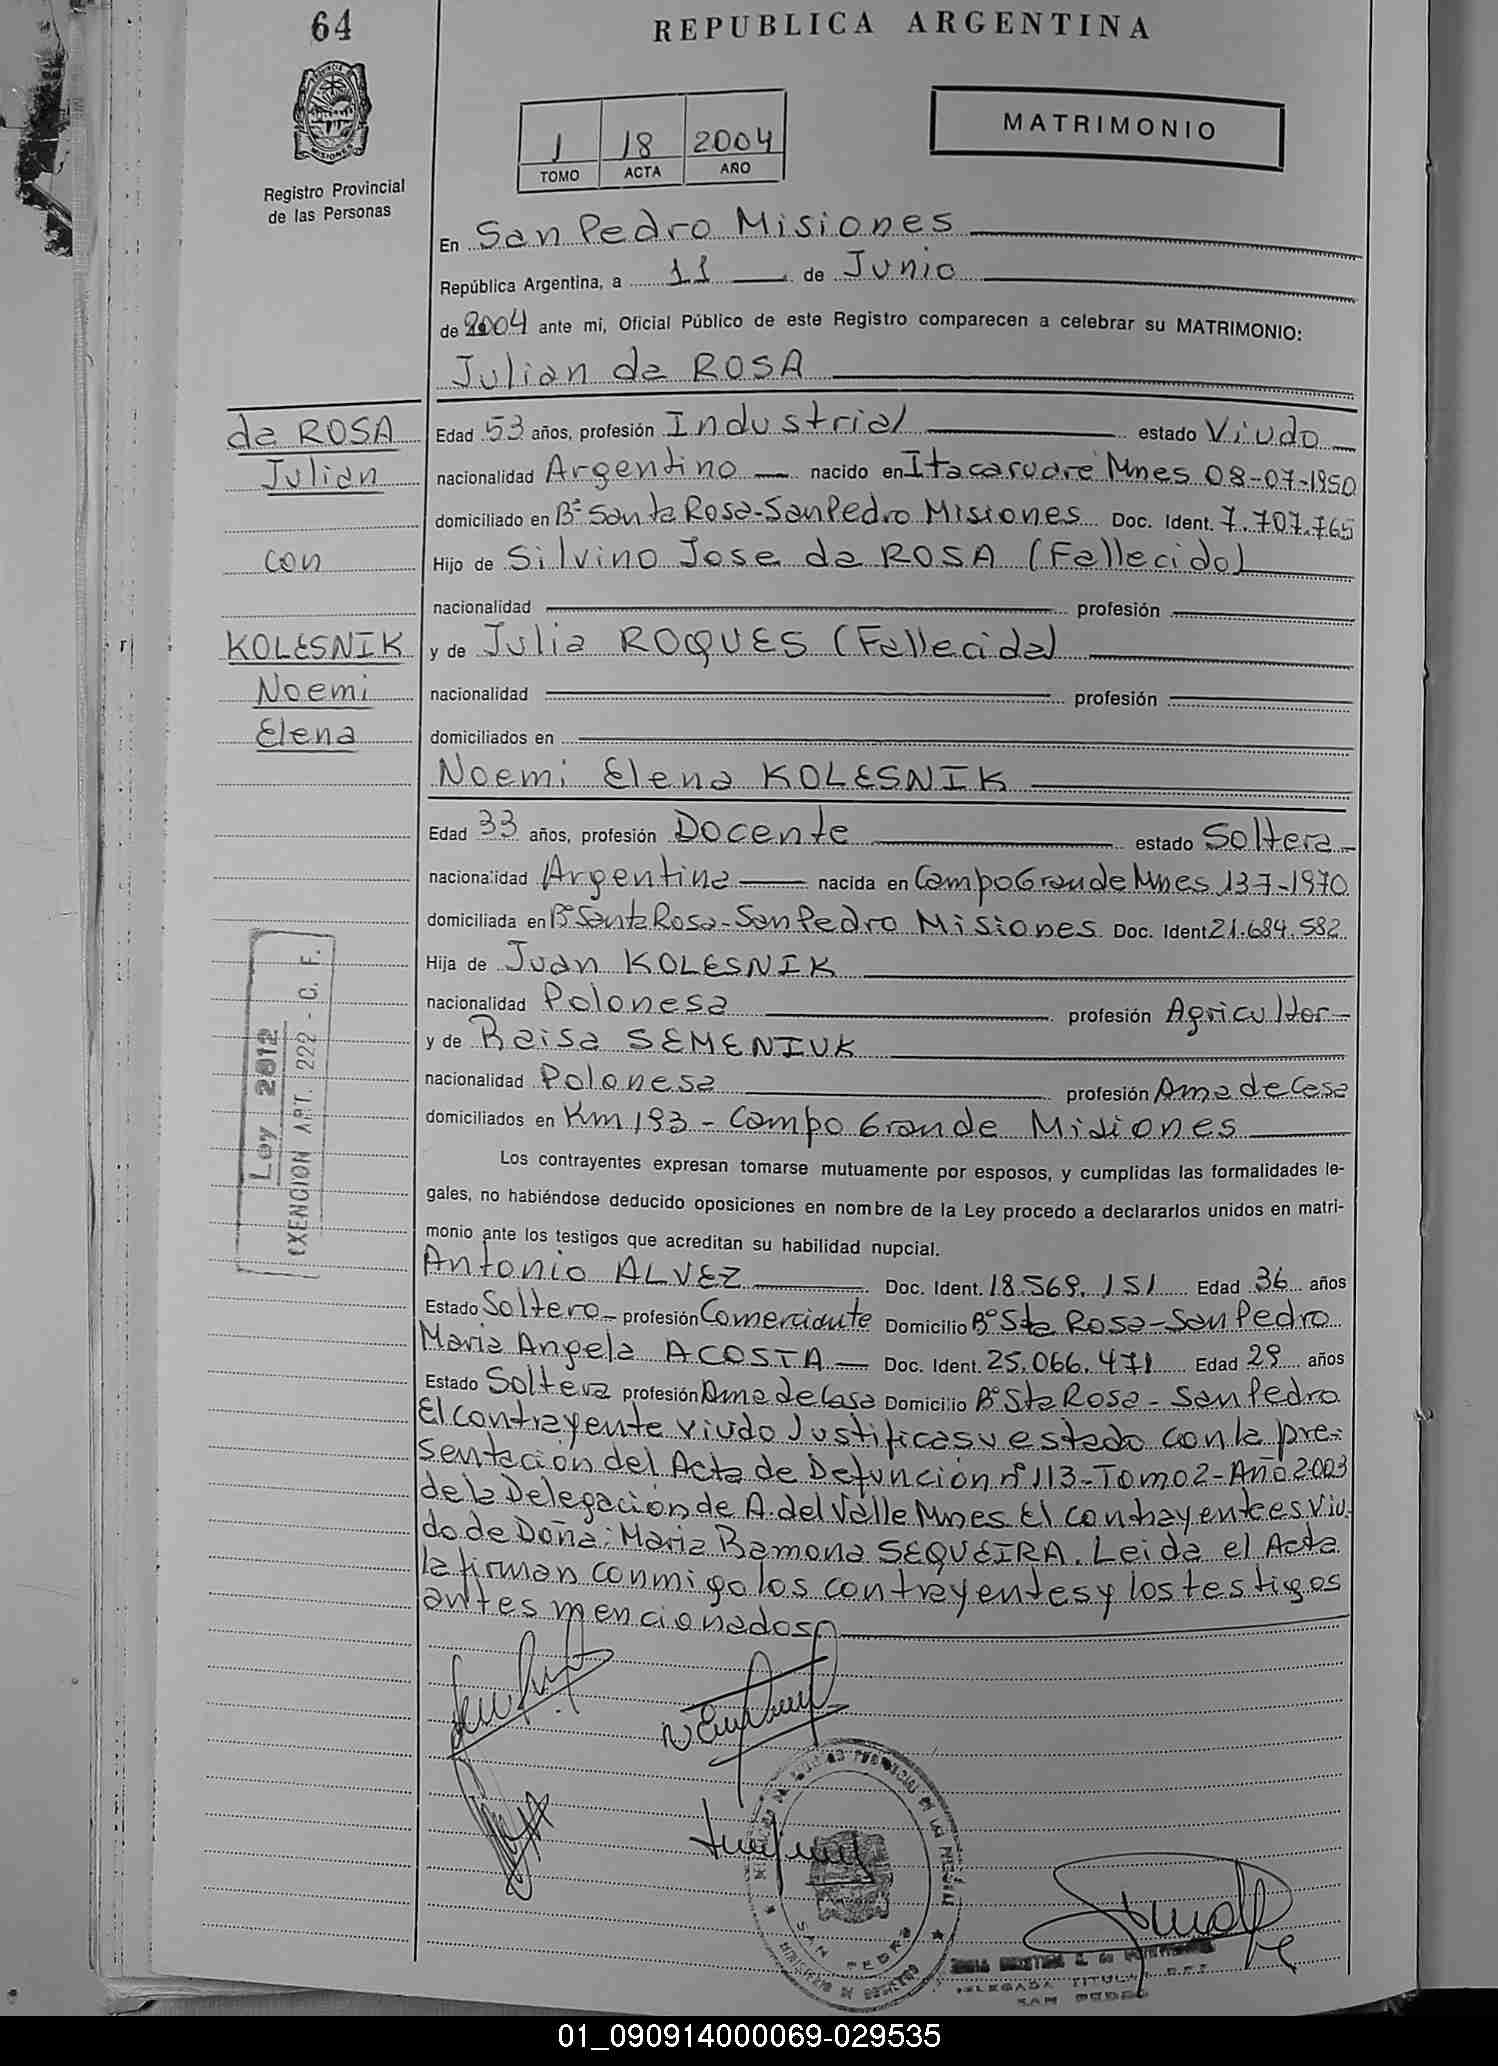 64
REPUBLICA ARGENTINA
PROVINCIA
MISIONES
Registro Provincial
de las Personas
1 18 2004
TOMO ACTA AÑO
MATRIMONIO
En San Pedro Misiones
República Argentina, a 11 de Junio
de 2004 ante mí, Oficial Público de este Registro comparecen a celebrar su MATRIMONIO:
Julian da ROSA
da ROSA
Julian
con
KOLESNIK
Noemi
Elena
Edad 53 años, profesión Industrial estado Viudo
nacionalidad Argentino nacido en Itacaruare Mnes 08-07-1950
domiciliado en Bº Santa Rosa-San Pedro Misiones Doc. Ident. 7.707.765
Hijo de Silvino Jose da ROSA (Fallecido)
nacionalidad profesión
y de Julia ROQUES (Fallecida)
nacionalidad profesión
domiciliados en
Noemi Elena KOLESNIK
Edad 33 años, profesión Docente estado Soltera
nacionalidad Argentina nacida en Campo Grande Mnes 13-7-1970
domiciliada en Bº Santa Rosa-San Pedro Misiones Doc. Ident 21.684.582
Hija de Juan KOLESNIK
nacionalidad Polonesa profesión Agricultor
y de Raisa SEMENIUK
nacionalidad Polonesa profesión Ama de Casa
domiciliados en Km 193 - Campo Grande Misiones
Ley 2812
EXENCION ART. 222 - C. F.
Los contrayentes expresan tomarse mutuamente por esposos, y cumplidas las formalidades le-
gales, no habiéndose deducido oposiciones en nombre de la Ley procedo a declararlos unidos en matri-
monio ante los testigos que acreditan su habilidad nupcial.
Antonio ALVEZ Doc. Ident. 18.569.151 Edad 36 años
Estado Soltero profesión Comerciante Domicilio Bº Sta Rosa-San Pedro
Maria Angela ACOSTA Doc. Ident. 25.066.471 Edad 29 años
Estado Soltera profesión Ama de Casa Domicilio Bº Sta Rosa - San Pedro
El contrayente viudo Justifica su estado con la pre-
sentación del Acta de Defunción nº 113-Tomo 2-Año 2003
de la Delegación de A. del Valle Mnes El contrayente es Viu
do de Doña: Maria Ramona SEQUEIRA. Leida el Acta
la firman conmigo los contrayentes y los testigos
antes mencionados
SAN PEDRO
DELEGADA TITULAR
SAN PEDRO
01_090914000069-029535